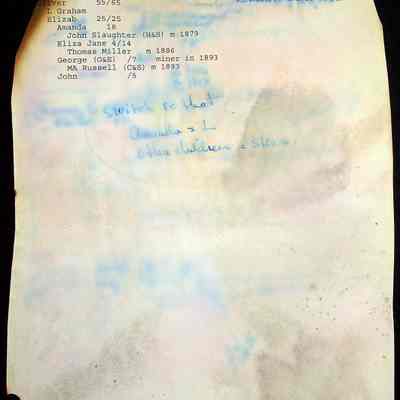 55/65
L Graham
Elizab 25/25
Amanda 18
John Slaughter (H&S) m 1879
Eliza Jane 4/14
Thomas Miller m 1886
George (G&S) /7 miner is 1893
MA Russell (C&S) m 1893
John /5
Switch so that
Amanda = L
other children =